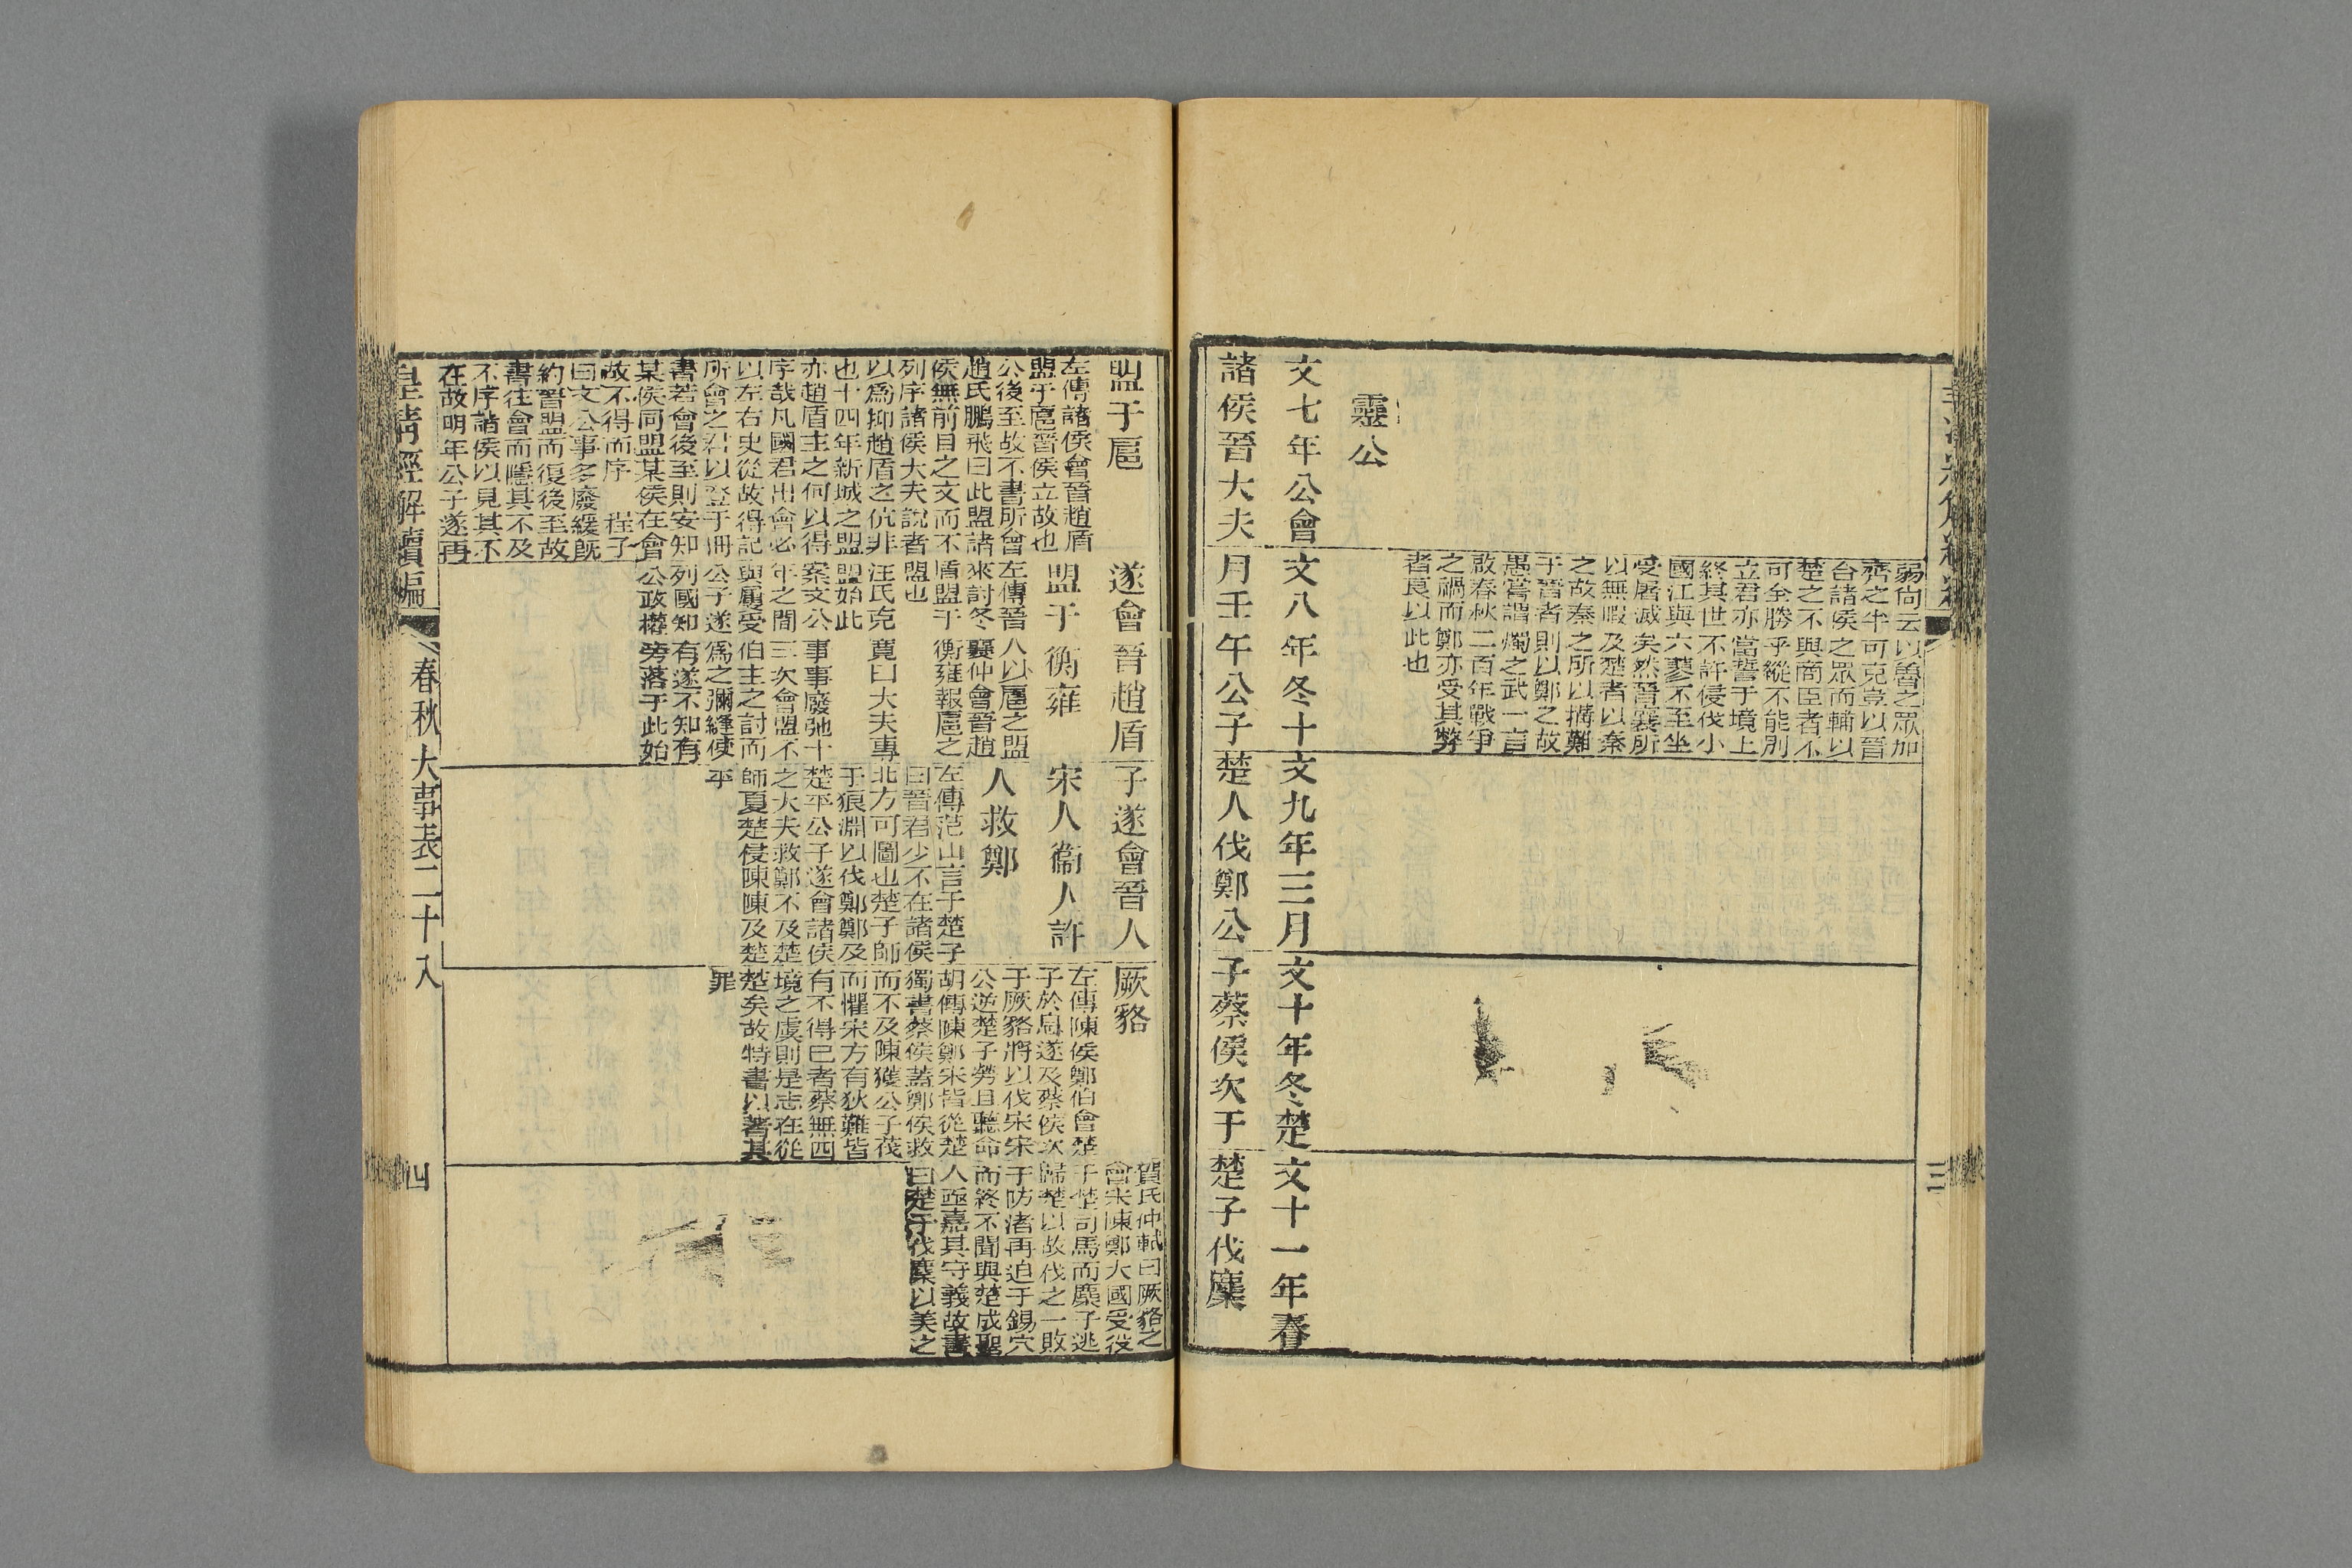 弱尙云以魯之眾加
齊之半可克豈以晉
台諸侯之眾而輔以
楚之不與商臣者不
可全勝乎縱不能別
立君亦當誓于境上
終其世不許侵伐小
國江與六蓼不至坐
受屠滅矣然晉襄所
以無暇及楚者以秦
之故秦之所以搆難
于晉者則以鄭之故
愚嘗謂燭之武一言
啟春秋二百年戰爭
之禍而鄭亦受其弊
者良以此也
三
靈公
文七年公會
諸侯晉大夫
盟于扈
左傳諸侯會晉趙盾
盟于扈晉侯立故也
公後至故不書所會
趙氏鵬飛曰此盟諸
侯無前目之文而不
列序諸侯大夫說者
以爲抑趙盾之伉非
也十四年新城之盟
亦趙盾主之何以得
序哉凡國君出會必
以左右史從故得記
所會之君以登于冊
書若會後至則安知
某侯同盟某侯在會
故不得而序 程子
曰文公事多廢緩旣
約晉盟而復後至故
書往會而隱其不及
不序諸侯以見其不
在故明年公子遂再
文八年冬十
月壬午公子
遂會晉趙盾
盟于衡雍
左傳晉人以扈之盟
來討冬襄仲會晉趙
盾盟于衡雍報扈之
盟也
汪氏克寬曰大夫專
盟始此
案文公事事廢弛十
年之間三次會盟不
與屢受伯主之討而
公子遂爲之彌縫使
列國知有遂不知有
公政權旁落于此始
文九年三月
楚人伐鄭公
子遂會晉人
宋人衞人許
人救鄭
左傳范山言于楚子
曰晉君少不在諸侯
北方可圖也楚子師
于狼淵以伐鄭鄭及
楚平公子遂會諸侯
之大夫救鄭不及楚
師夏楚侵陳陳及楚
平
文十年冬楚
子蔡侯次于
厥貉
左傳陳侯鄭伯會楚
子於息遂及蔡侯次
于厥貉將以伐宋宋
公逆楚子勞且聽命
胡傳陳鄭宋皆從楚
獨書蔡侯蓋鄭侯救
而不及陳獲公子茷
而懼宋方有狄難皆
有不得已者蔡無四
境之虞則是志在從
楚矣故特書以著其
罪
文十一年春
楚子伐麇
賀氏仲軾曰厥貉之
會宋陳鄭大國受役
于楚司馬而麇子逃
歸楚以故伐之一敗
于防渚再迫于錫穴
而終不聞與楚成聖
人亟嘉其守義故書
曰楚子伐麇以美之
皇淸經解續編
春秋大事表二十八
四